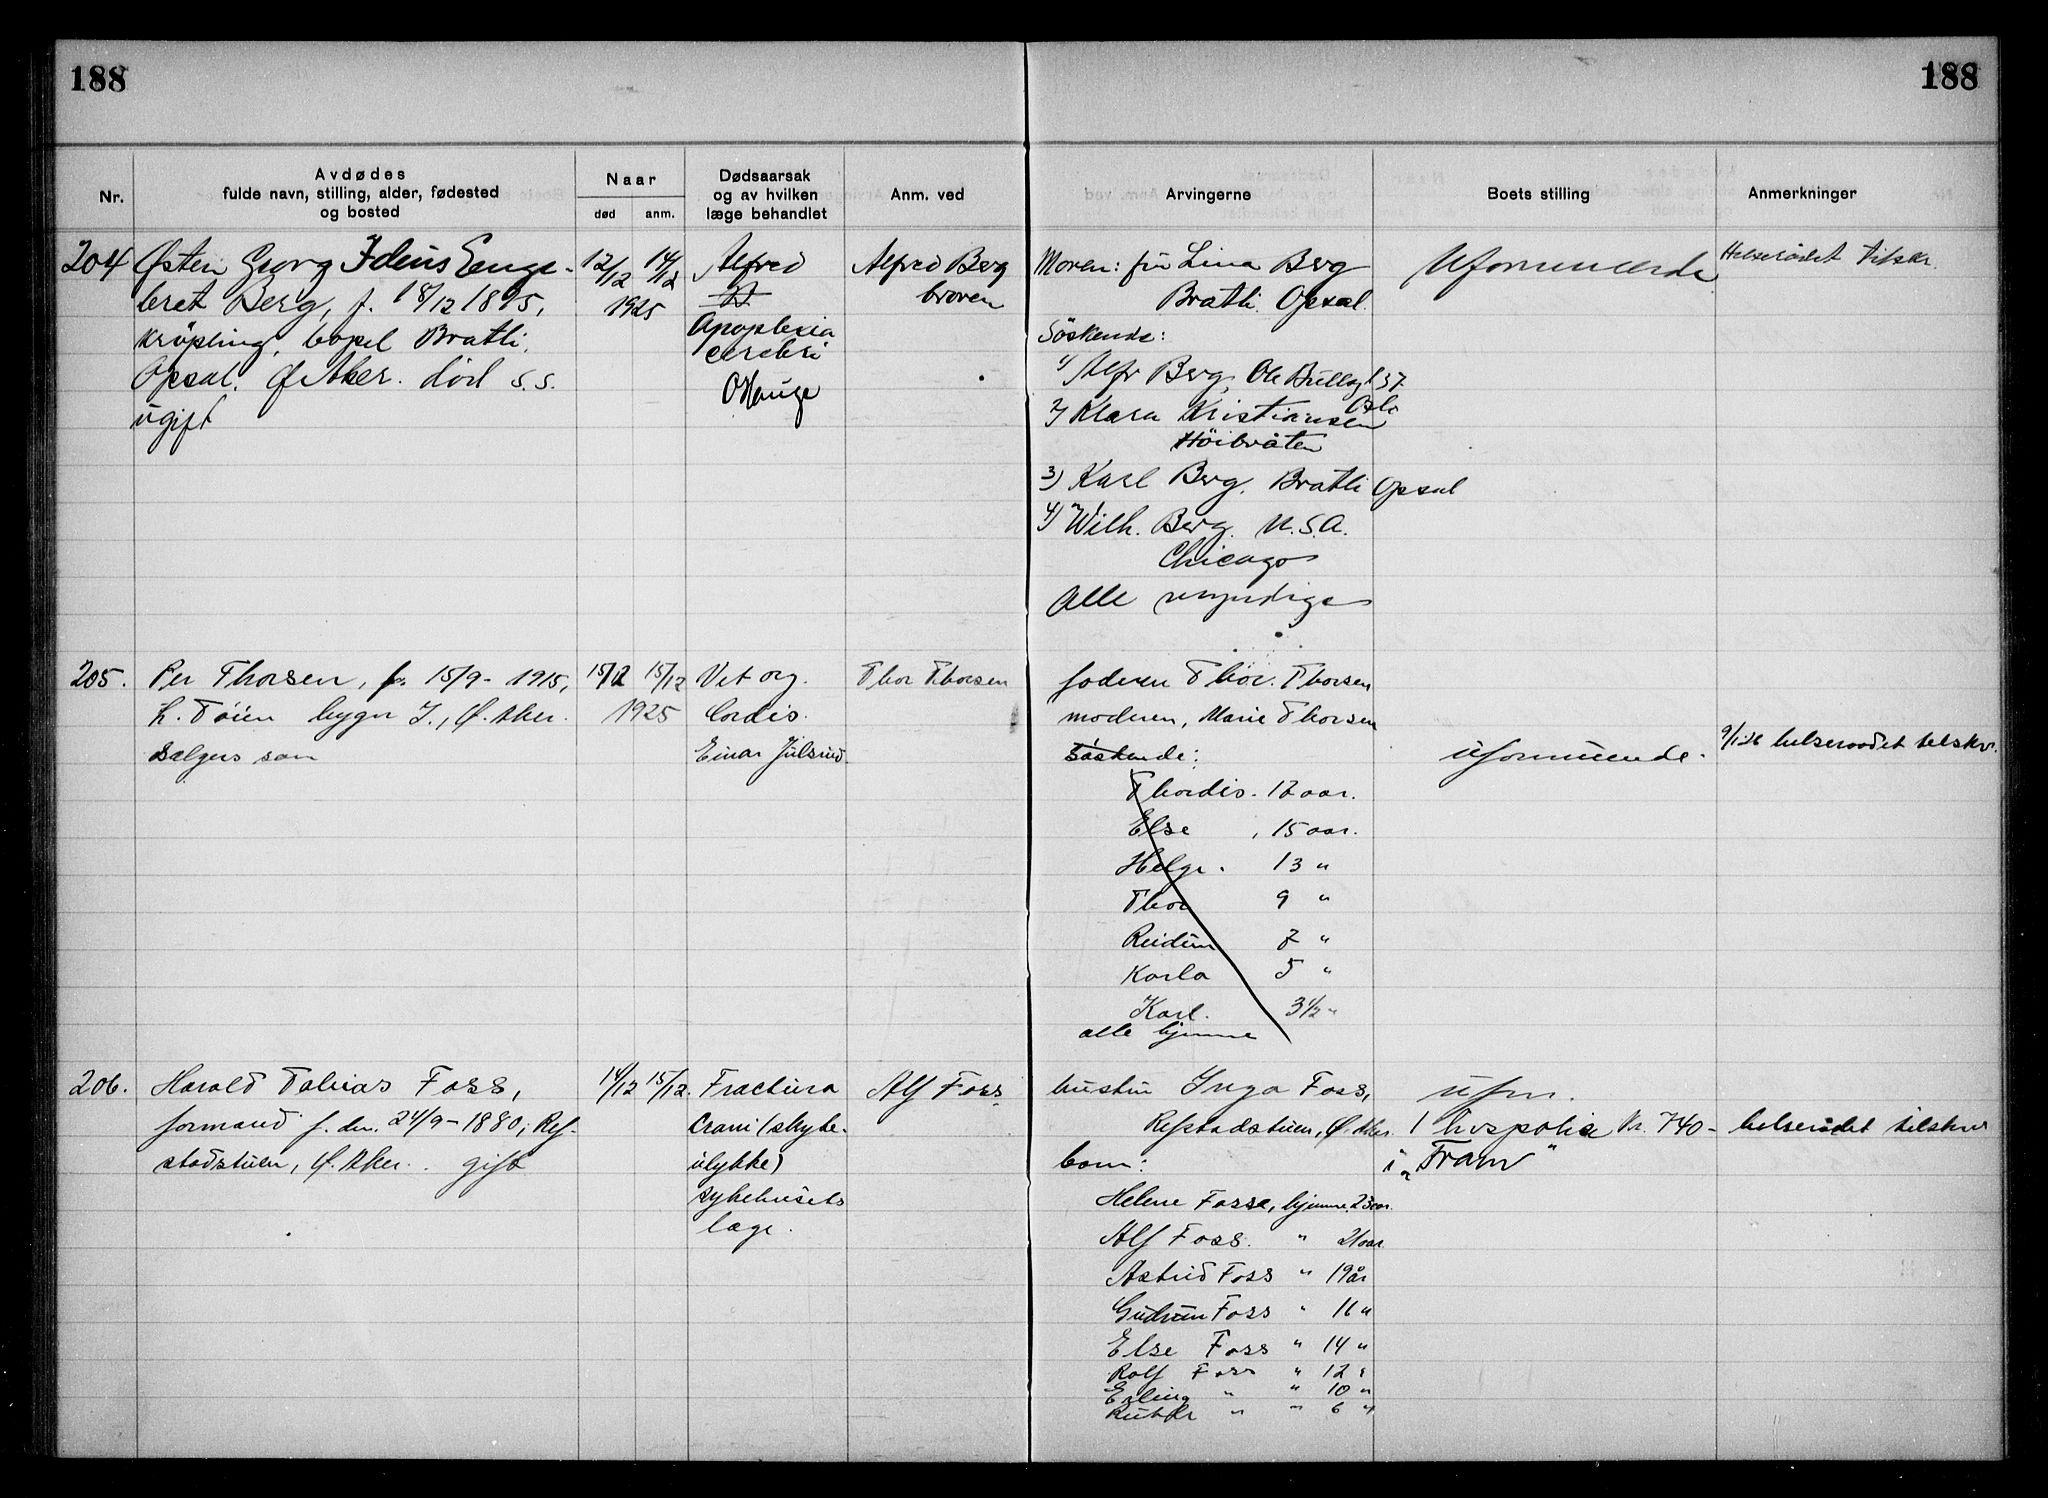 188
188
Nr.
Avdødes
fulde navn, stilling, alder, fødested
og bosted
Naar
død
anm.
Dødsaarsak
og av hvilken
læge behandlet
Anm. ved
Arvingerne
Boets stilling
Anmerkninger
204
Østen Georg Enge-
bret Berg, f. 18/12 1895,
krøpling, bopel Bratli,
Opsal. Ø Aker. død s.s.
ugift
12/12
14/12
1925
Alfred
Apoplexia
cerebri
O Hauge
Alfred Berg
broren
Moren: fru Lina Berg
Bratli Opsal.
Söskende:
1) Alfr Berg, Ole Bullsgt 37
Oslo
2) Klara Kristiansen
Höibråten
3) Karl Berg, Bratli Opsal
4) Wilh. Berg. U.S.A.
Chicago
Alle myndige
Uformuende
Helserådet tilskr.
205.
Per Thorsen, f. 15/9- 1915,
L. Töien bygn I., Ø. Aker.
Sælgers søn
15/12
15/12
1925
Vit org.
Cordis.
Einar Julsrud.
Thor Thorsen
faderen Thor. Thorsen
moderen, Marie Thorsen
Söskende:
Thordis. 17 aar.
Else , 15 aar.
Helge. 13 "
Thor 9 "
Reidun 7 "
Karla 5 "
Karl. 3 1/2 "
alle hjemme
uformuende.
9/1 26 helseraadet tilskr.
206.
Harald Tobias Foss,
formand f. den. 24/9-1880, Ref-
stadstuen, Ø. Aker. gift
14/12
15/12.
Fractura
Crani (skytte-
ulykke)
sykehusets
læge.
Alf Foss.
hustru Inga Foss,
Refstadstuen, Ø. Aker.
barn:
Helene Fosse, hjemme 23 aar.
Alf Foss. " 21 aar
Astrid Foss " 19 år
Gudrun Foss " 16 "
Else Foss " 14 "
Rolf Foss " 12 "
Erling " " 10 "
Ruth " " 6 "
ufm.
1 livspolise Kr. 740-
i „Fram"
helserådet tilskrev